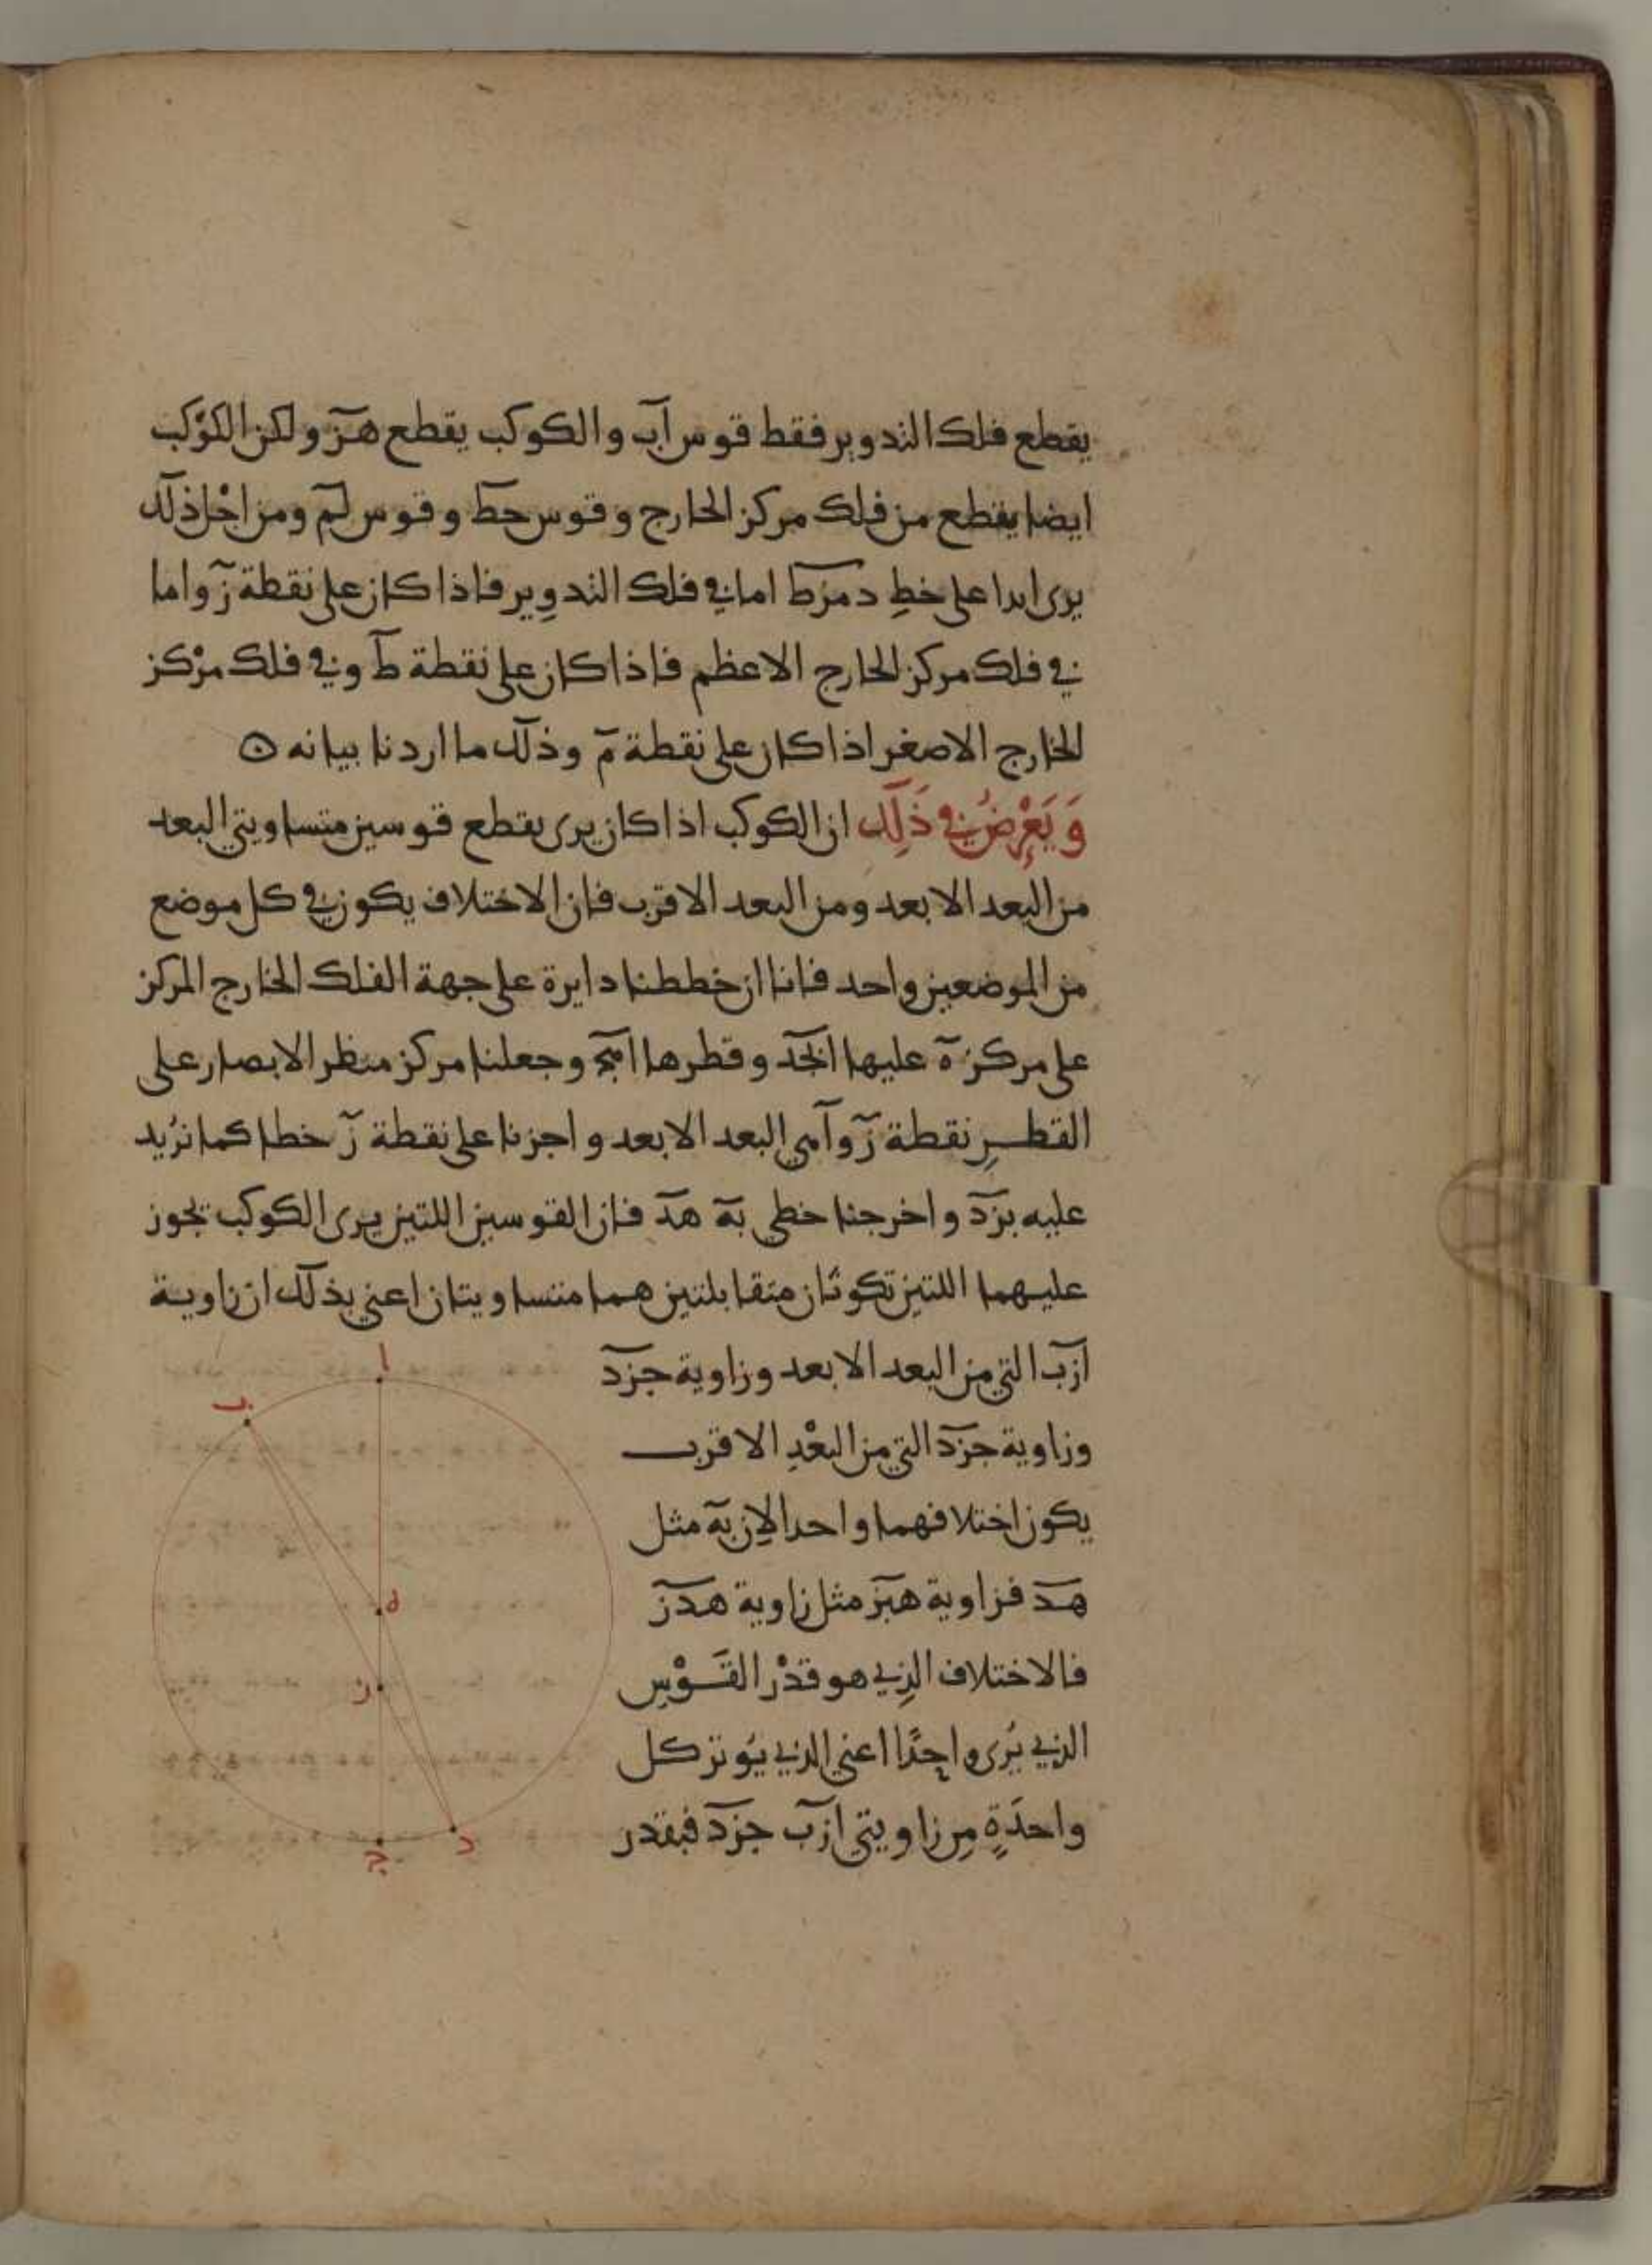 يقطع فلك التدوير فقط قوس اب والكوكب يقطع هز ولكن الكَوْكب
ايضا يقطع من فلك مركز الخارج وقوس حط وقوس لم ومن اجْل ذلك
يرى ابدا على خطِ دمزط اما في فلك التدوِير فاذا كان على نقطة ز واما
في فلك مركز الخارج الاعظم فاذا كان على نقطة ط وفي فلك مرْكز
الخارج الاصغر اذا كان على نقطة م وذلك ما اردنا بيانه ⊙
وَيَعْرِضُ في ذَلِك ان الكوكب اذا كان يرى يقطع قوسين متساويتي البعد
من البعد الابعد ومن البعد الاقرب فان الاختلاف يكون في كل موضع
من الموضعين واحد فانا ان خططنا دايرة على جهة الفلك الخارج المركز
على مركز ه عليها ابجد وقطرها اهج وجعلنا مركز منظر الابصار على
القطرِ نقطة ز وا هي البعد الابعد واجزنا على نقطة ز خطا كما نرُيد
عليه بزد واخرجنا خطي به هد فان القوسين اللتين يرى الكوكب تجوز
عليهما اللتين تكونان متقابلتين هما متساويتان اعني بذلك ان زاوية
ازب التي من البعد الابعد وزاوية جزد
وزاوية جزد التي من البعْدِ الاقرب
يكون اختلافهما واحدا لاِن به مثل
هد فزاوية هبز مثل زاوية هدز
فالاختلاف الذِي هو قدْر القَوْسِ
الذي يُرى واحِدًا اعني الذي يُوتر كل
واحدَةٍ مِن زاويتي ازب جزد فبقدر
ا
ب
ه
ز
د
ج